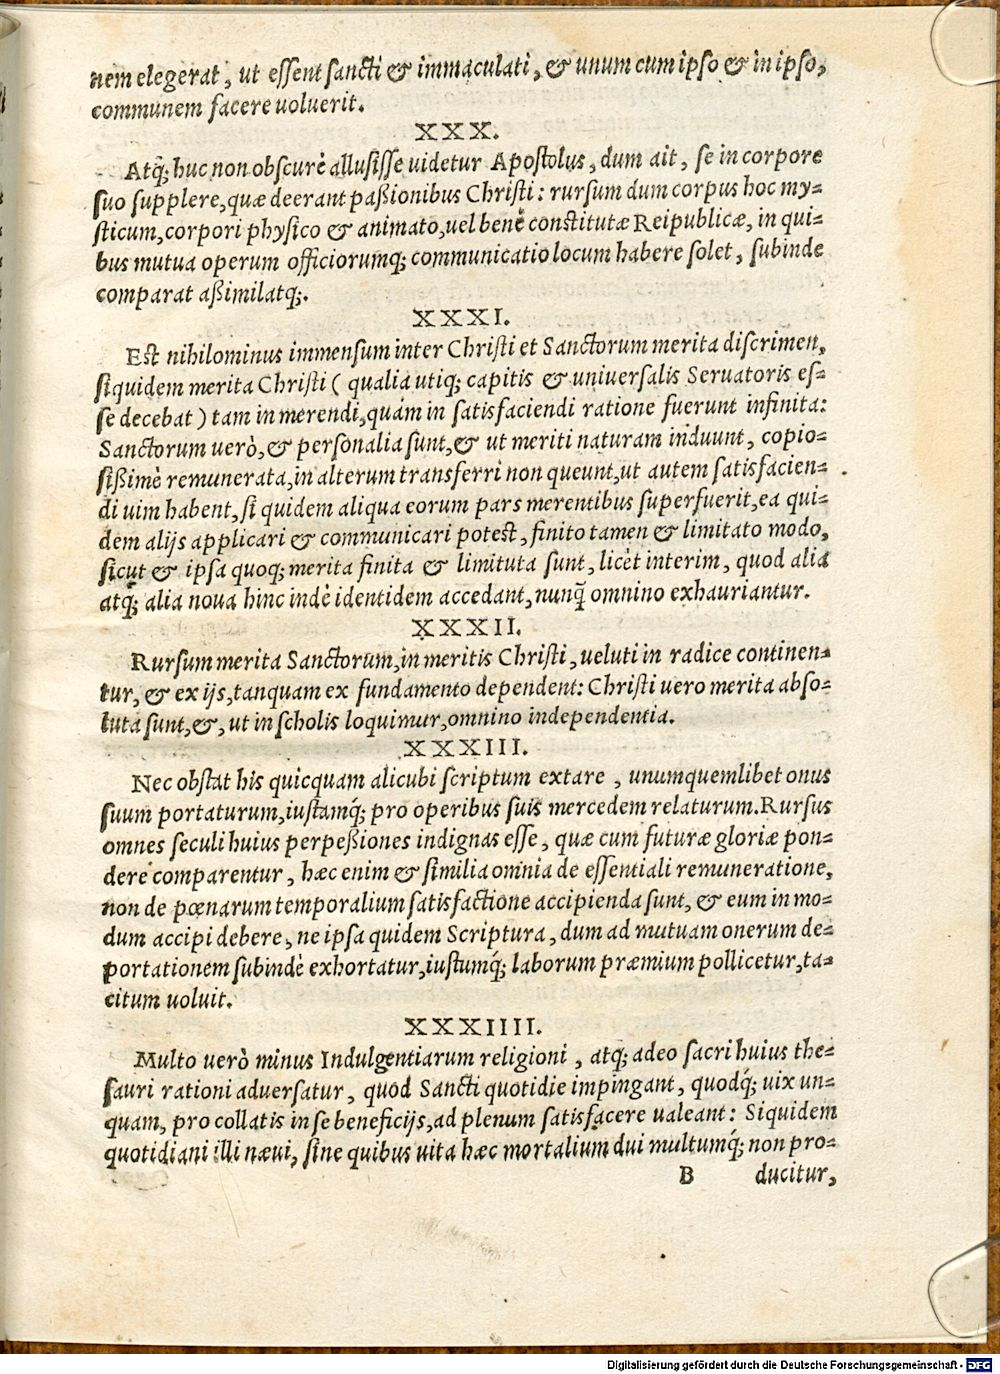 nem elegerat, ut eſſent ſancti & immaculati, & unum cum ipſo & in ipſo,
communem facere uoluerit.
XXX.
Atq́; huc non obſcurè alluſiſſe uidetur Apoſtolus, dum ait, ſe in corpore
ſuo ſupplere, quæ deerant paßionibus Chriſti: rurſum dum corpus hoc my=
ſticum, corpori phyſico & animato, uel benè conſtitutæ Reipublicæ, in qui=
bus mutua operum officiorumq́; communicatio locum habere ſolet, ſubinde
comparat aßimilatq́;.
XXXI.
Eſt nihilominus immenſum inter Chriſti et Sanctorum merita diſcrimen,
ſiquidem merita Chriſti ( qualia utiq; capitis & uniuerſalis Seruatoris eſ=
ſe decebat ) tam in merendi, quàm in ſatisfaciendi ratione fuerunt infinita:
Sanctorum uerò, & perſonalia ſunt, & ut meriti naturam induunt, copio=
ſißimè remunerata, in alterum transferri non queunt, ut autem ſatisfacien=
di uim habent, ſi quidem aliqua eorum pars merentibus ſuperfuerit, ea qui=
dem alijs applicari & communicari poteſt, finito tamen & limitato modo,
ſicut & ipſa quoq; merita finita & limituta ſunt, licèt interim, quod alia
atq́; alia noua hinc indè identidem accedant, nunq̃ omnino exhauriantur.
XXXII.
Rurſum merita Sanctorum, in meritis Chriſti, ueluti in radice continen=
tur, & ex ijs, tanquam ex fundamento dependent: Chriſti uero merita abſo=
luta ſunt, &, ut in ſcholis loquimur, omnino independentia.
XXXIII.
Nec obſtat his quicquam alicubi ſcriptum extare , unumquemlibet onus
ſuum portaturum, iuſtamq́; pro operibus ſuis mercedem relaturum. Rurſus
omnes ſeculi huius perpeßiones indignas eſſe, quæ cum futuræ gloriæ pon=
derè comparentur, hæc enim & ſimilia omnia de eſſentiali remuneratione,
non de pœnarum temporalium ſatisfactione accipienda ſunt, & eum in mo=
dum accipi debere, ne ipſa quidem Scriptura, dum ad mutuam onerum de=
portationem ſubindè exhortatur, iuſtumq́; laborum præmium pollicetur, ta=
citum uoluit.
XXXIIII.
Multo uerò minus Indulgentiarum religioni , atq; adeo ſacri huius the=
ſauri rationi aduerſatur, quod Sancti quotidie impingant, quodq́; uix un=
quam, pro collatis in ſe beneficijs, ad plenum ſatisfacere ualeant: Siquidem
quotidiani illi næui, ſine quibus uita hæc mortalium dui multumq́; non pro=
B ducitur,
Digitalisierung gefördert durch die Deutsche Forschungsgemeinschaft - DFG